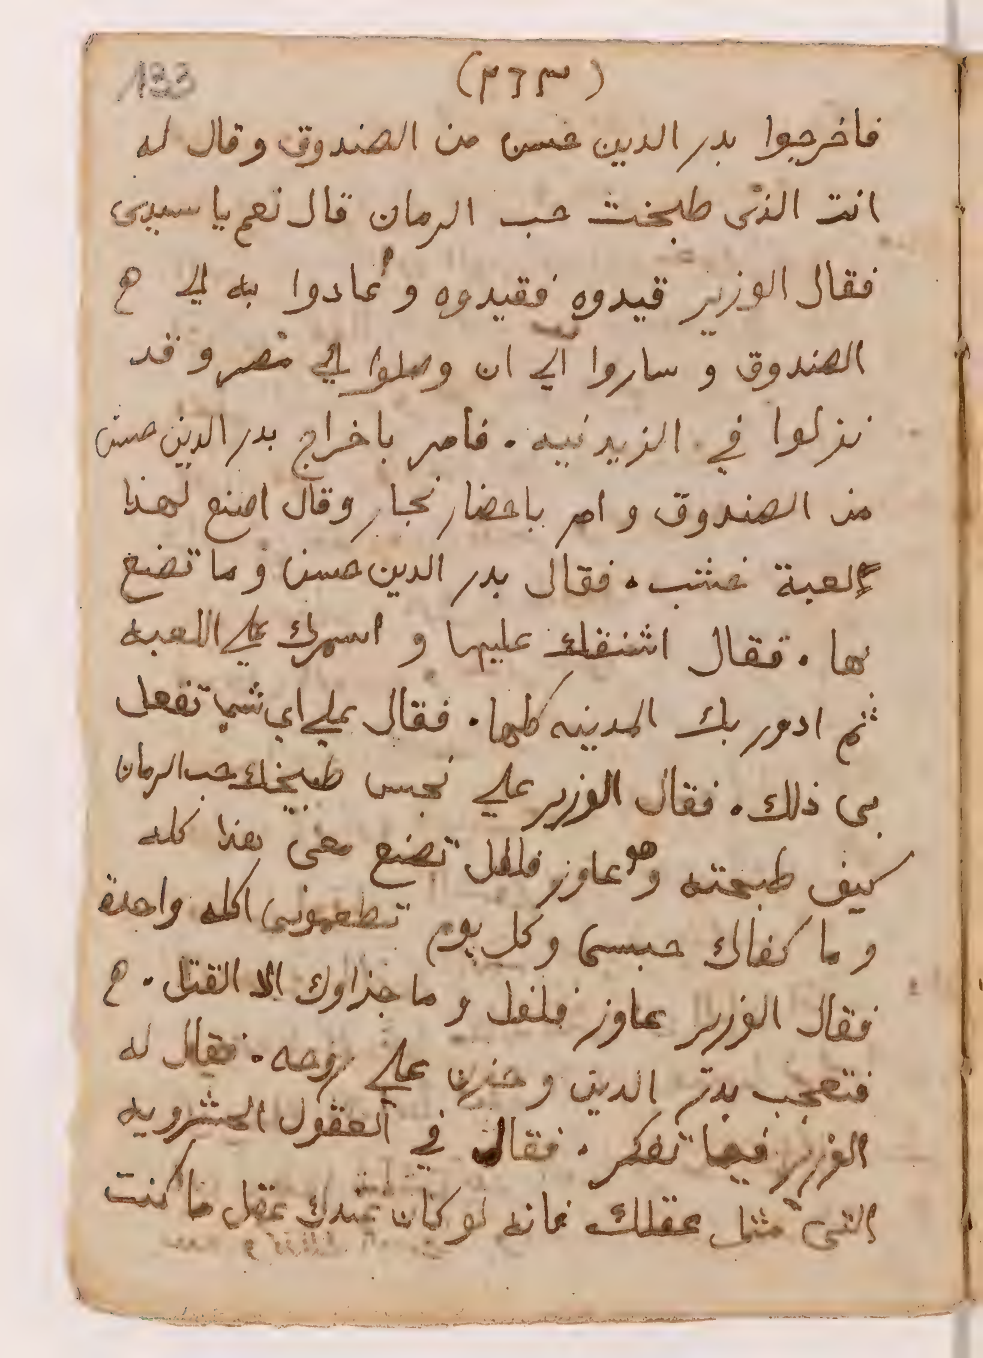 133
(٣٦٣)
فاخرجوا بدر الدين حسن من الصندوق وقال له
انت الذى طبخت حب الرمان قال نعم يا سيدى
فقال الوزير قيدوه فقيدوه و أعادوا به الى
الصندوق و ساروا الى ان وصلوا الى مصر و قد
نزلوا في الزيدنيه . فامر باخراج بدر الدين حسن
من الصندوق و امر باحضار نجار وقال اصنع لهذا
لعبة خشب . فقال بدر الدين حسن و ما تصنع
بها . فقال اشنقك عليها و اسمرك على اللعبه
ثم ادور بك المدينه كلها . فقال على اى شى تفعل
بى ذلك . فقال الوزير على نجس طبيخك حب الرمان
كيف طبخته وهو عاوز فلفل تصنع معى هذا كله
و ما كفاك حبسى وكل يوم تطعمونى اكله واحدة
فقال الوزير عاوز فلفل و ما جزاوك الا القتل .
فتعجب بدر الدين و حزن على روحه . فقال له
الوزير فيما تفكر . فقال في العقول الحشرويه
التى مثل عقلك فانه لو كان عندك عقل ما كنت